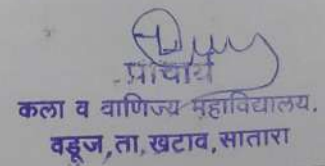 प्राचार्य
कला व वाणिज्य महाविद्यालय,
वडूज,ता,खटाव,सातारा